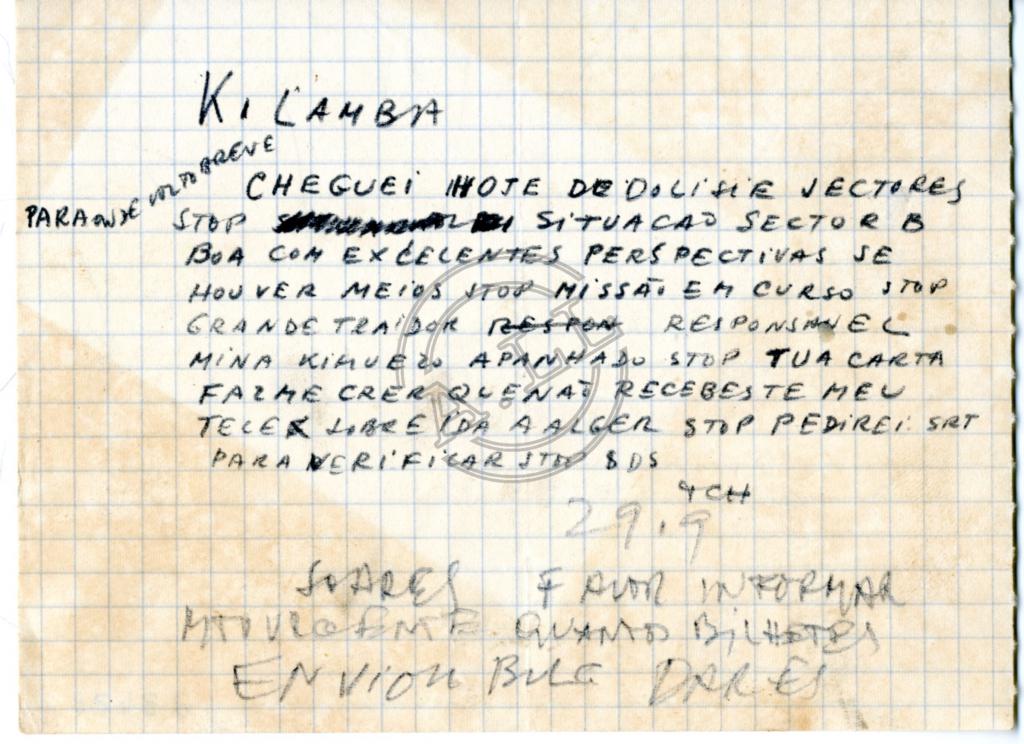 KILAMBA
PARA ONDE VOLTO BREVE
CHEGUEI HOJE DE DOLISIE SECTORES
STOP SITUACAO SECTOR B
BOA COM EXCELENTES PERSPECTIVAS SE
HOUVER MEIOS STOP MISSÃO EM CURSO STOP
GRANDE TRAIDOR RESPON RESPONSAVEL
MINA KIMUEZO APANHADO STOP TUA CARTA
FAZME CRER QUE NAO RECEBESTE MEU
TELEX SOBRE IDA A ALGER STOP PEDIREI SRT
PARA VERIFICAR STOP SDS
TCH
29.9
SOARES FAVOR INFORMAR
MTO URGENTE QUANTOS BILHETES
ENVIOU BULG DARES
A.L.H